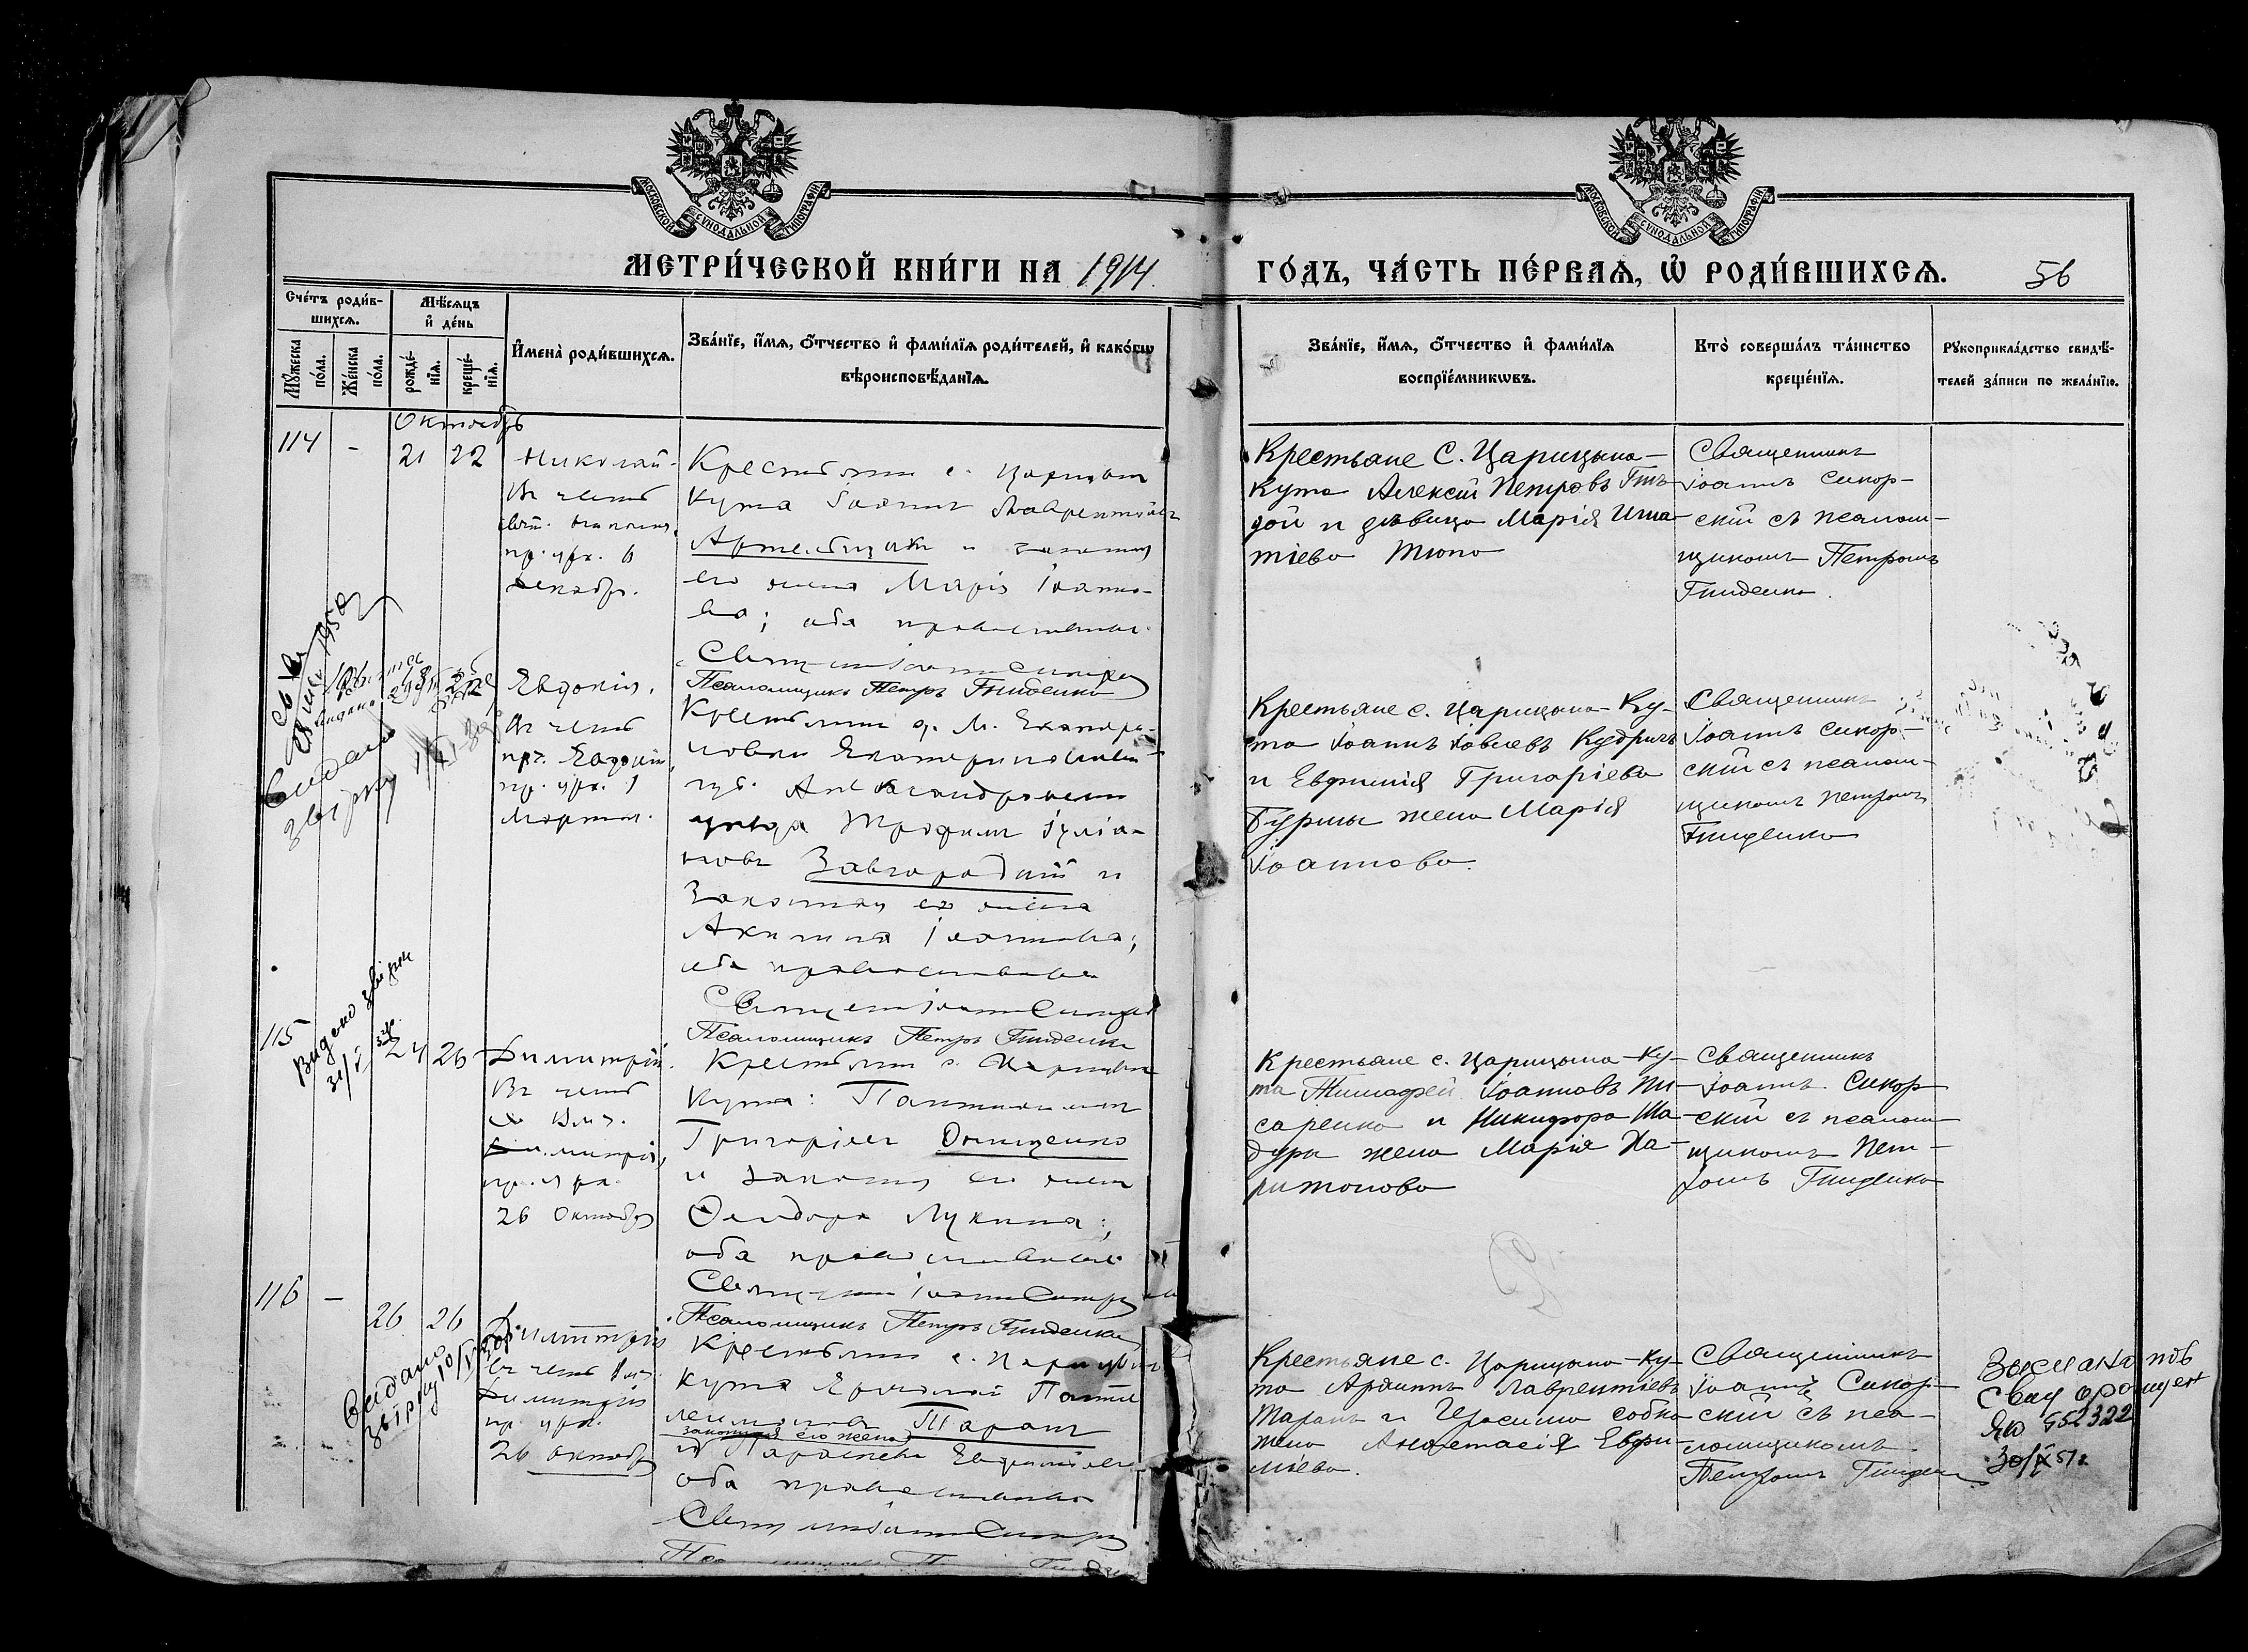 МОСКОВСКОЙ СУНОДАЛЬНОЙ ТИПОГРАФІИ
МОСКОВСКОЙ СУНОДАЛЬНОЙ ТИПОГРАФІИ
МЕТРИ́ЧЕСКОЙ КНИ́ГИ НА 1914
ГО́ДЪ, ЧА́СТЬ ПЕ́РВАЯ, Ѡ РОДИ́ВШИХСЯ.
56
Сче́тъ роди́в-
шихся.
Мѣ́сяцъ
и҆ де́нь
Му́жеска
по́ла.
Же́нска
по́ла.
рожде́-
нїя.
креще́-
нїя.
И҆мена̀ роди́вшихся.
Зва́нїе, и҆́мя, ѻ҆́тчество и҆ фами́лїя роди́телей, и҆ како́гѡ
вѣроисповѣ́данїя.
Зва́нїе, и҆́мя, ѻ҆́тчество и҆ фами́лїя
воспрїе́мникѡвъ.
Кто̀ соверша́лъ та́инство
креще́нїя.
Рꙋкоприкла́дство свидѣ́-
телей за́писи по жела́нїю.
Октябрь
114
-
21
22
Николай.
Въ честь
свят. Николая,
пр. црк. 6
декабр.
Крестьянин с. Царицын
Кута Іоаннъ Лаврентіевъ
и законная
его жена Марія Іоанно-
ва; оба православные.
Псаломщикъ Петръ Гниденко
Крестьяне С. Царицына-
Кута Алексій Петровъ Гнѣ-
дой и дѣвица Марія Игна-
тіева Тюпа
Священникъ
Іоаннъ Сикор-
скій съ псалом-
щикомъ Петромъ
Гниденко.
Видано
звірку
Евдокія.
Въ честь
прч. Евдокіи,
пр. црк. 1
Марта.
Крестьянин д. М. Екатери-
новки Екатеринославск
губ. Александровск
уѣзда Трофимъ Іуліа-
новъ Завгородній и
законная его жена
Акилина Іоаннова;
оба православные
Псаломщикъ Петръ Гниденко
Крестьяне с. Царицына-Ку-
та Іоаннъ Іовлевъ Кудричъ
и Евфимія Григоріева
Бурмы жена Марія
Іоаннова.
Священникъ
Іоаннъ Сикор-
скій съ псалом-
щикомъ Петромъ
Гниденко
115
Видано звірку
24
26
Димитрій.
Въ честь
св Влмч.
Димитрія,
пр. црк.
26 Октября
Крестьянин с. Царицын
Кута: Пантелеимон
Григоріевъ Онищенко
и законная его жена
Феодора Лукина;
оба православные.
Псаломщикъ Петръ Гниденко
Крестьяне с. Царицына-Ку-
та Тимофей Іоанновъ Пи-
саренко и Никифора Ша-
дуры жена Марія Ха-
ритонова
Священникъ
Іоаннъ Сикор-
скій съ псалом-
щикомъ Пет-
ромъ Гниденко
116
-
26
26
Видано
звірку
Димитрій
въ честь Влмч.
Димитрія
пр. црк.
26 октября
Крестьянин с. Царицын
Кута Ермолай Панте
леимонов Таран
законная его жена
и Параскева Евфиміева
оба православные
Крестьяне с. Царицына-Ку-
та Архиппъ Лаврентіевъ
Таранъ и Герасима Собко
жена Анастасія Евфи-
міева.
Священникъ
Іоаннъ Сикор-
скій съ пса-
ломщикомъ
Петромъ Гниден
Выслано пов
Свид о рожден
ЯЮ 552322
30/X 51г